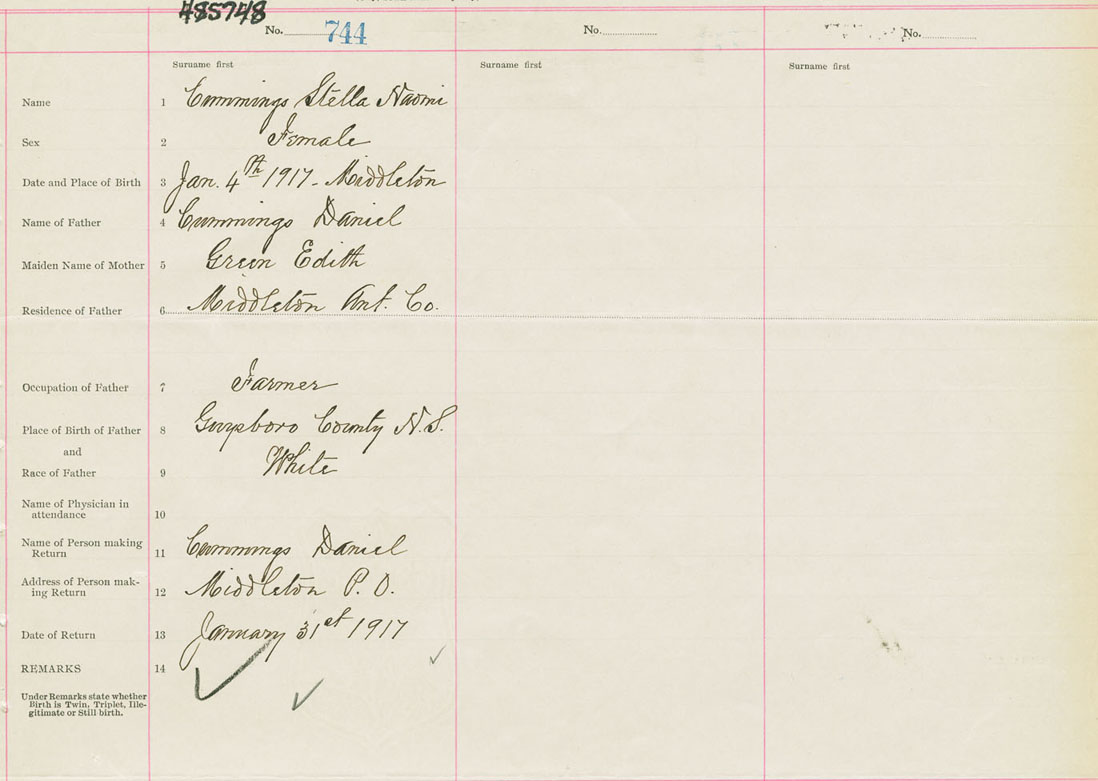 485748
No. 744 No. No.
Surname first Surname first Surname first
Name 1 Cummings Stella Naomi
Sex 2 Female
Date and Place of Birth 3 Jan. 4th 1917 - Middleton
Name of Father 4 Cummings Daniel
Maiden Name of Mother 5 Green Edith
Residence of Father 6 Middleton Ant. Co.
Occupation of Father 7 Farmer
Place of Birth of Father 8 Guysboro County N.S.
and
Race of Father 9 White
Name of Physician in
attendance 10
Name of Person making
Return 11 Cummings Daniel
Address of Person mak-
ing Return 12 Middleton P. O.
Date of Return 13 January 31st 1917
REMARKS 14
Under Remarks state whether
Birth is Twin, Triplet, Ille-
gitimate or Still birth.